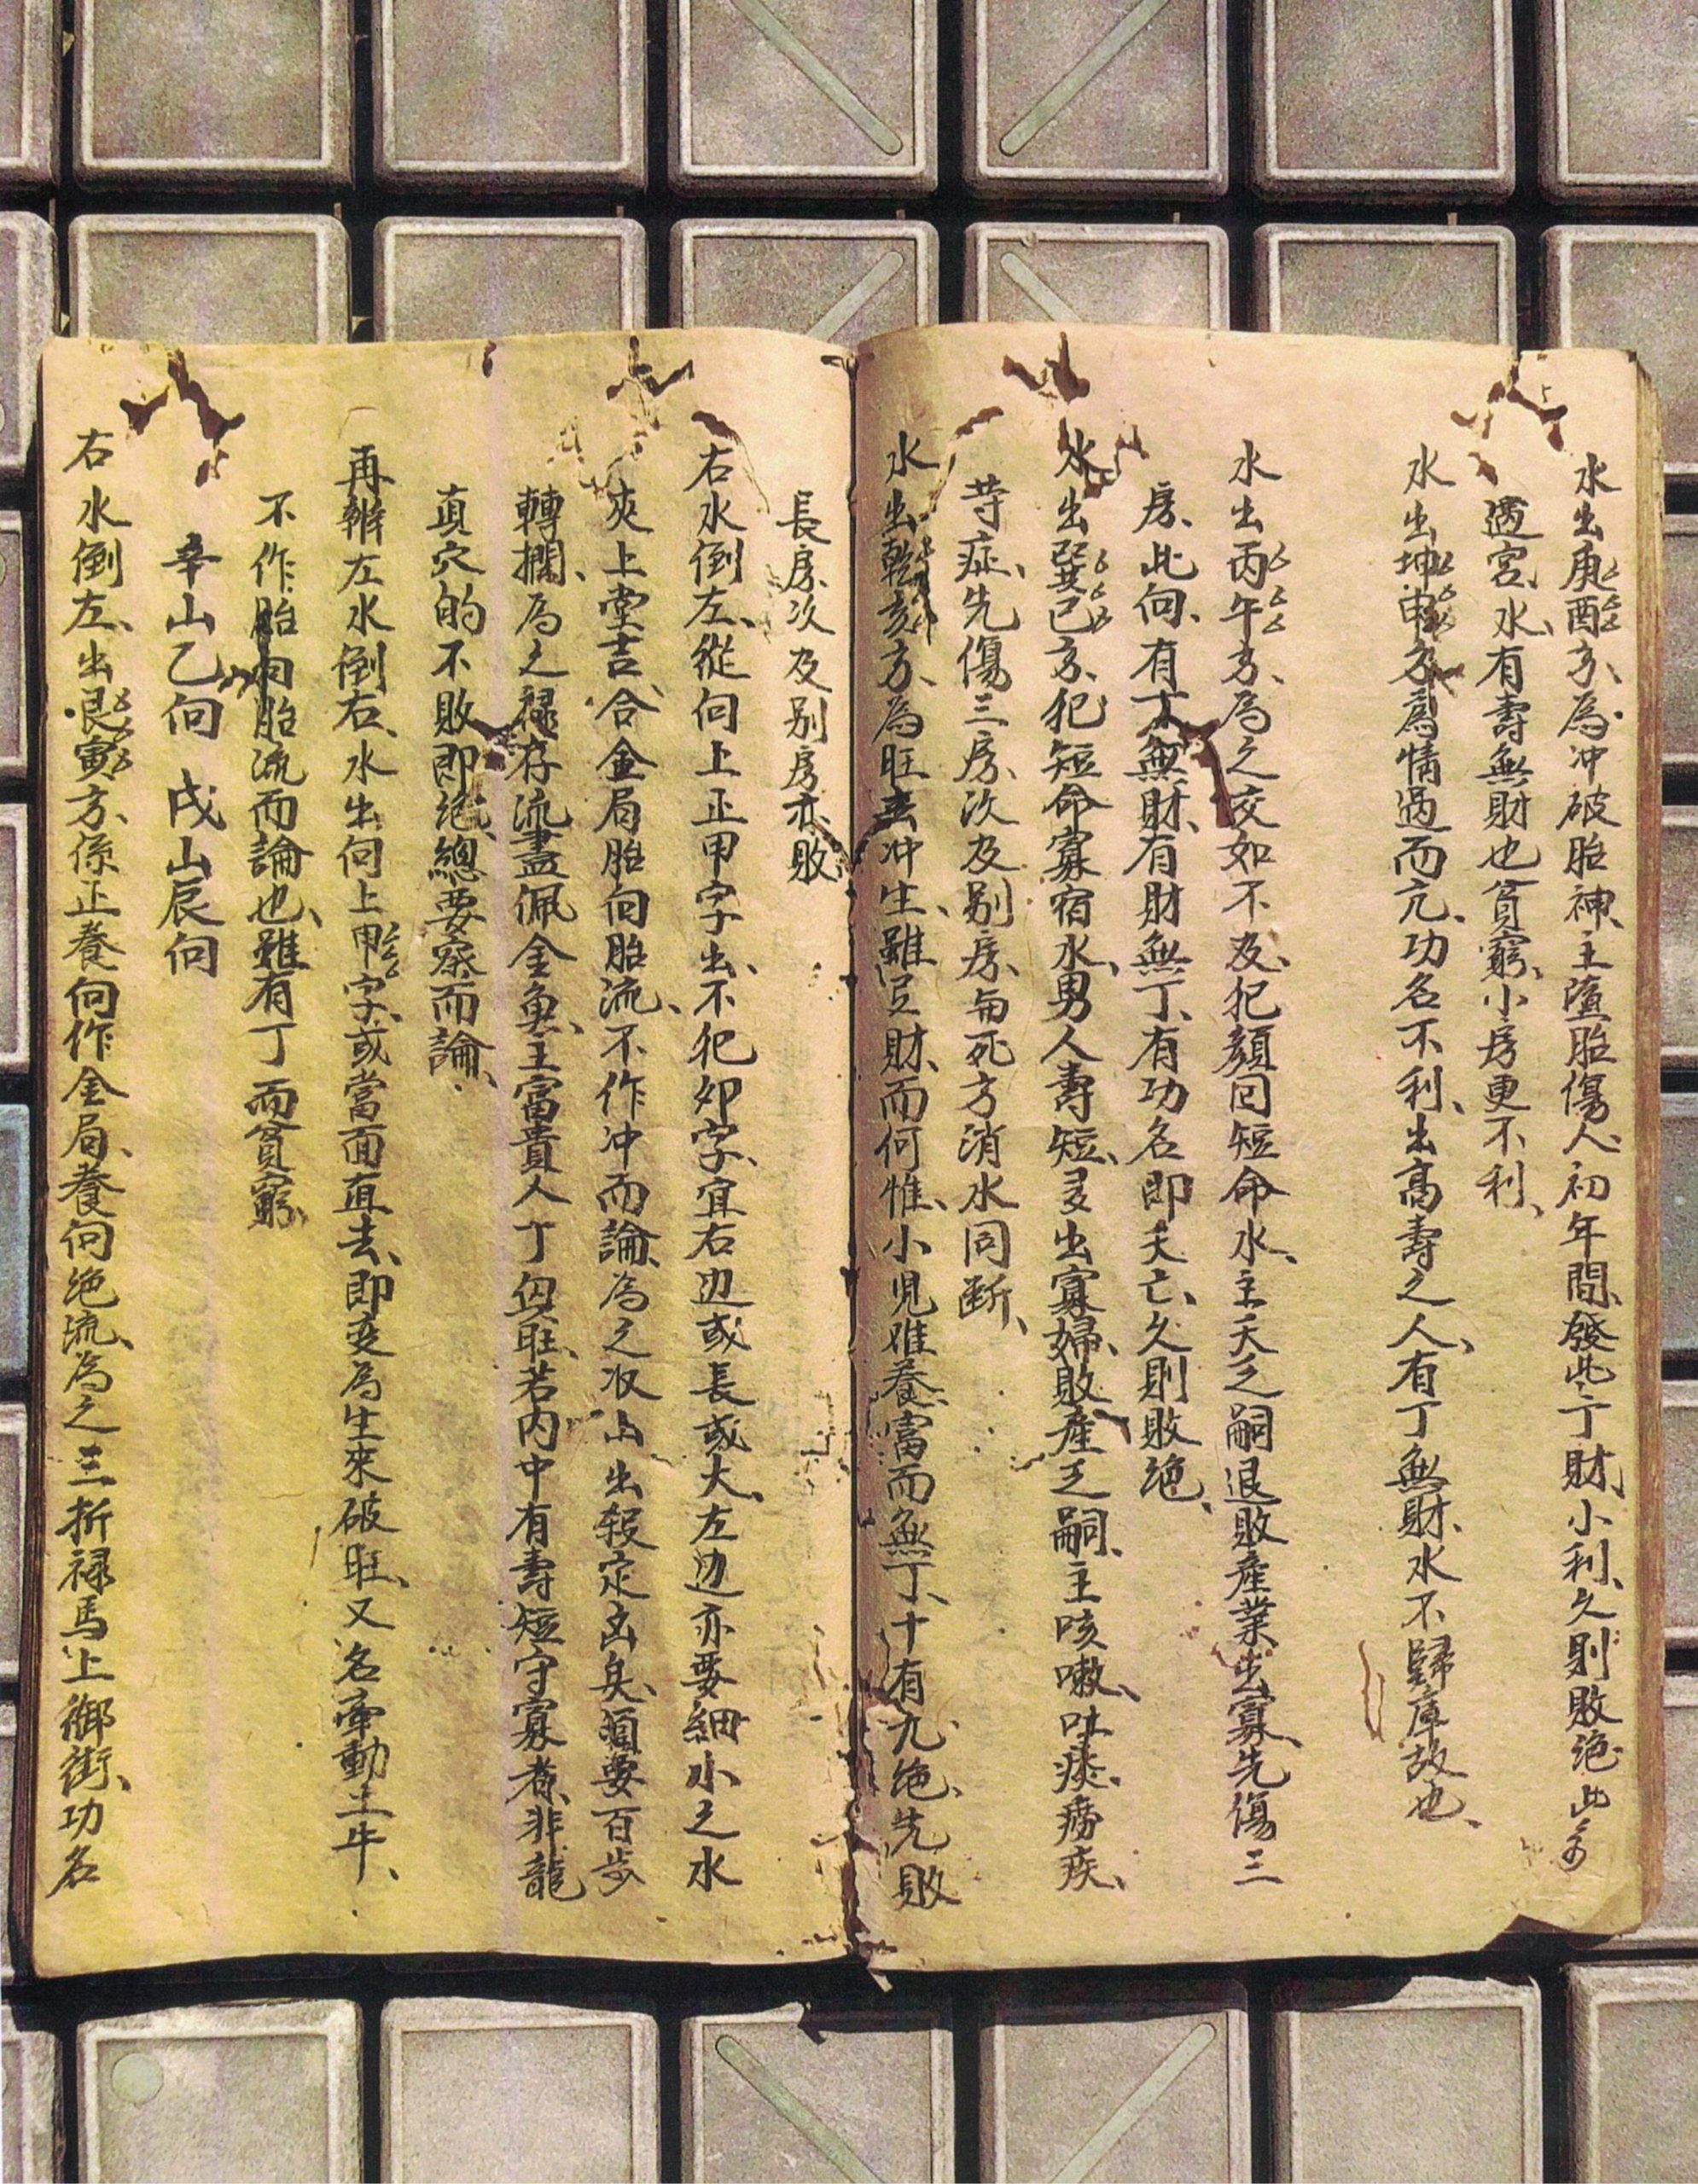 水出庚酉方、為冲破胎神、主墮胎傷人、初年間、發些丁財、小利、久則敗絕此系
過宮水、有壽無財也貧窮、小房更不利、
水出坤申方為情過而亢、功名不利、出高壽之人、有丁無財、水不歸庫故也、
水出丙午方、為之交如不及、犯顏回短命水、主夭乏嗣退敗產業出寡、先傷三
房、此向、有丁無財、有財無丁、有功名即夭亡、久則敗絕、
水出巽巳方、犯短命寡宿水、男人壽短、多出寡婦、敗產乏嗣、主咳嗽、吐痰、癆疾、
苛症、先傷三房、次及别房、與死方消水同断、
水出乾亥方、為旺去冲生、雖豆財、而何惟、小児难養、富而無丁、十有九絕、先敗
長房、次及别房亦敗
右水倒左、從向上正甲字出、不犯卯字、宜右边或長或大、左边亦要細小之水
夾上堂吉、合金局胎向胎流、不作冲而論、為之水上出殺定凶矣、須要百步
轉攔、為之禄存流盡佩金魚、主富貴人丁興旺、若内中有壽短守寡者、非龍
真穴的不敗即絕、總要察而論、
再辨左水倒右、水出向上甲字、或當面直去、即变為生來破旺、又名牽動土牛、
不作胎向胎流而論也、雖有丁而貧窮、
辛山乙向 戌山辰向
右水倒左、出艮寅方、係正養向作金局、養向絕流、為之三折禄馬上御街、功名